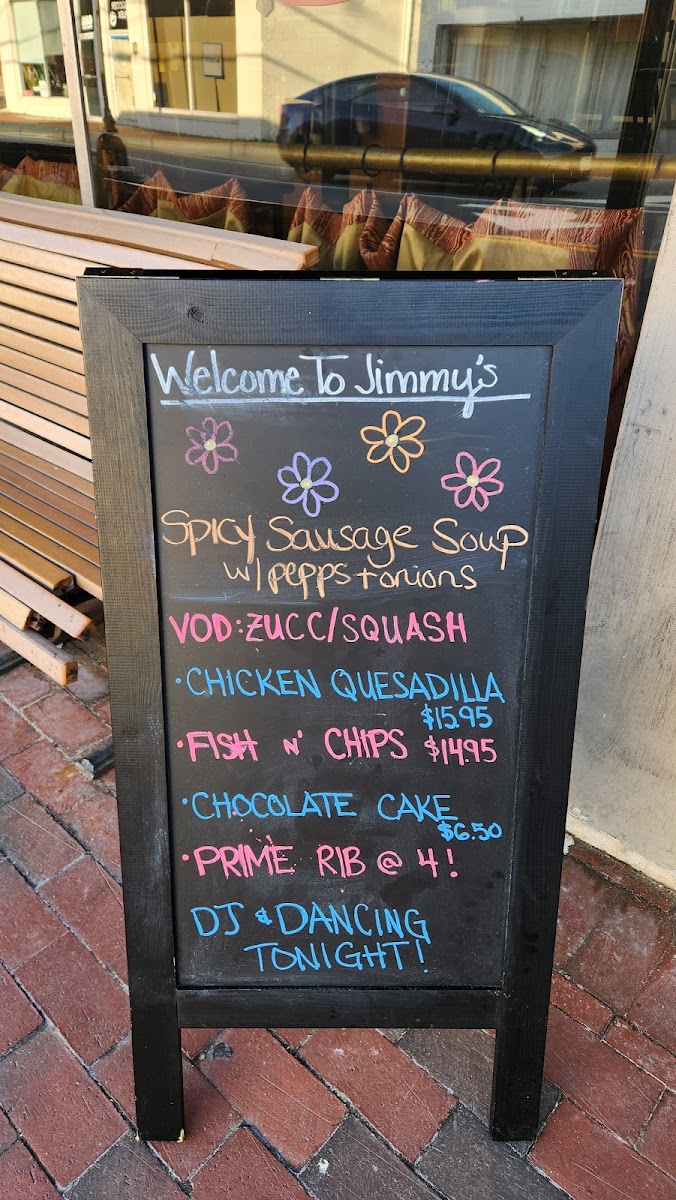 Welcome To Jimmy's
Spicy Sausage Soup
w/ pepps + onions
VOD: ZUCC/SQUASH
·CHICKEN QUESADILLA
$15.95
·FISH N' CHIPS $14.95
·CHOCOLATE CAKE
$6.50
·PRIME RIB @ 4!
DJ & DANCING
TONIGHT!